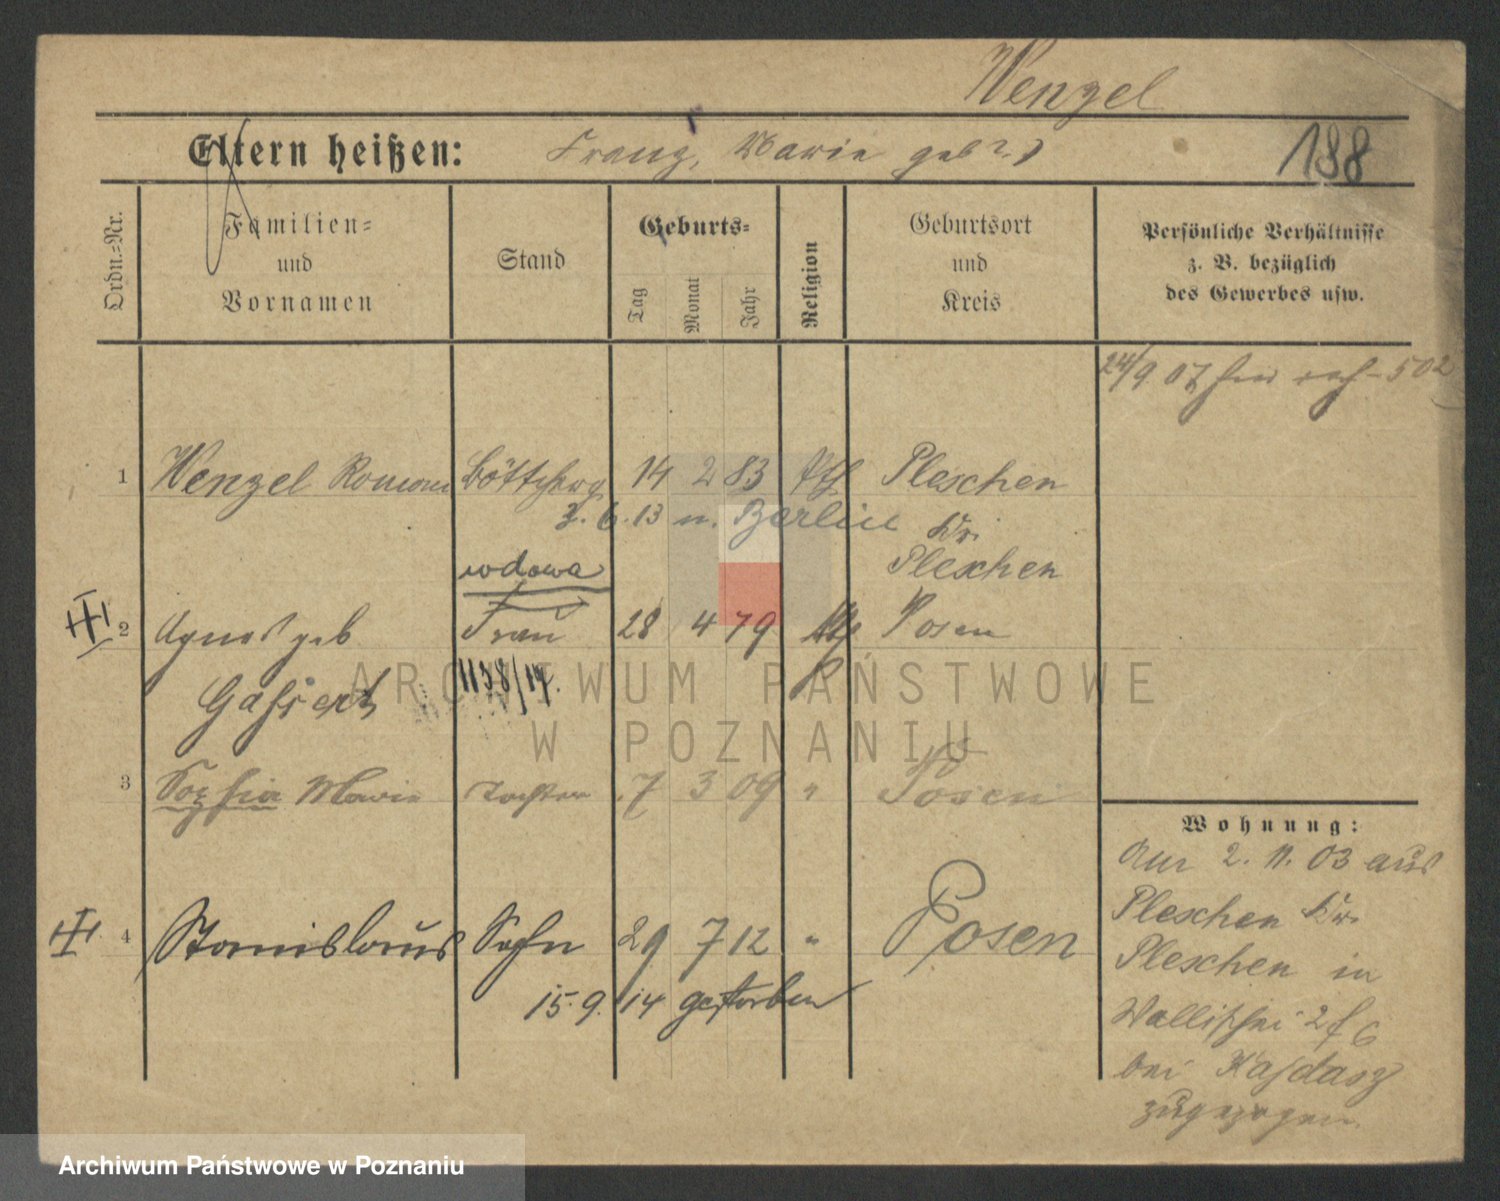 Wenzel
Eltern heißen: Franz, Marie geb ?
188
Ordn.-Nr.
Familien- und Vornamen
Stand
Geburts-
Tag
Monat
Jahr
Religion
Geburtsort und Kreis
Persönliche Verhältnisse
z. B. bezüglich
des Gewerbes usw.
24/9 07 502
1 Wenzel Roman Böttcherg 14 2 83 kth Pleschen
3. 6. 13 n. Berlin Kr.
Pleschen
wdowa
2 Agnes geb Frau 28 4 79 kth Posen
1138/14.
3 Sophia Marie Tochter 7 3 09 " Posen
Wohnung:
Am 2. 11. 03 aus
Pleschen Kr.
Pleschen in
Wallischei 2
bei Kajdasz
zugezogen
4 Stanislaus Sohn 29 7 12 " Posen
15. 9. 14 gestorben
ARCHIWUM PAŃSTWOWE
W POZNANIU
Archiwum Państwowe w Poznaniu